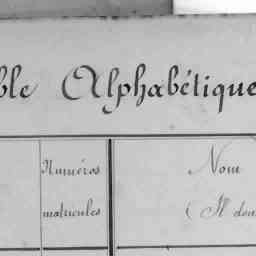 ble Alphabétique
Numéros
matricules
Nom
(Il